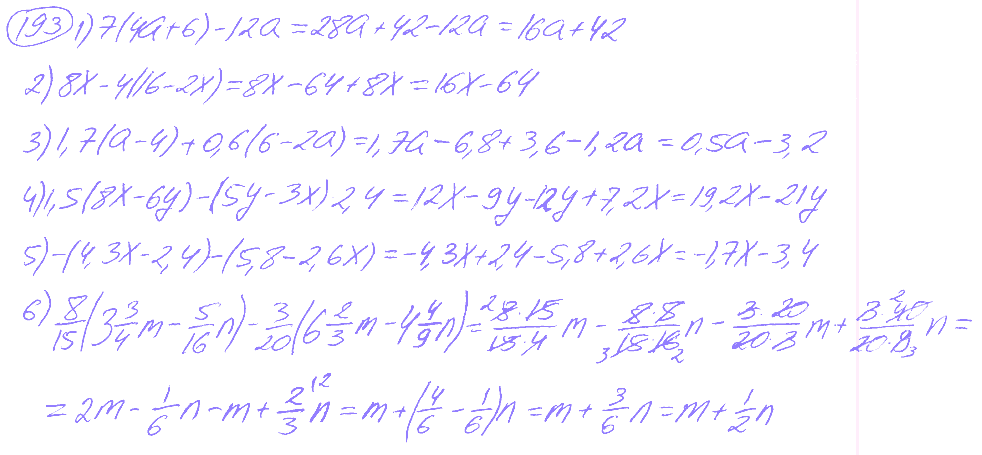 193 1) 7(4a+6)-12a=28a+42-12a=16a+42
2) 8x-4(16-2x)=8x-64+8x=16x-64
3) 1,7(a-4)+0,6(6-2a)=1,7a-6,8+3,6-1,2a=0,5a-3,2
4) 1,5(8x-6y)-(5y-3x)2,4=12x-9y-12y+7,2x=19,2x-21y
5) -(4,3x-2,4)-(5,8-2,6x)=-4,3x+2,4-5,8+2,6x=-1,7x-3,4
6) 8/15(3 3/4 m - 5/16 n) - 3/20(6 2/3 m - 4 4/9 n) = 2 8·15/15·4 m - 8·8/3 15·16 2 n - 3·20/20·3 m + 3·40 2/20·9 3 n =
= 2m - 1/6 n - m + 2/3 12 n = m + (4/6 - 1/6)n = m + 3/6 n = m + 1/2 n